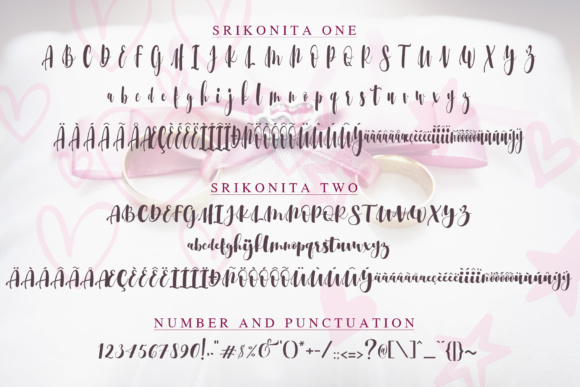 SRIKONITA ONE
A B C D E F G H I J K L M N O P Q R S T U V W X Y Z
a b c d e f g h i j k l m n o p q r s t u v w x y z
SRIKONITA TWO
ABCDEFGHIJKLMNOPQRSTUVWXYZ
abcdefghijklmnopqrstuvwxyz
NUMBER AND PUNCTUATION
1234567890!.,"#$%&'()*+-/:;<=>?@[\]^_`{|}~